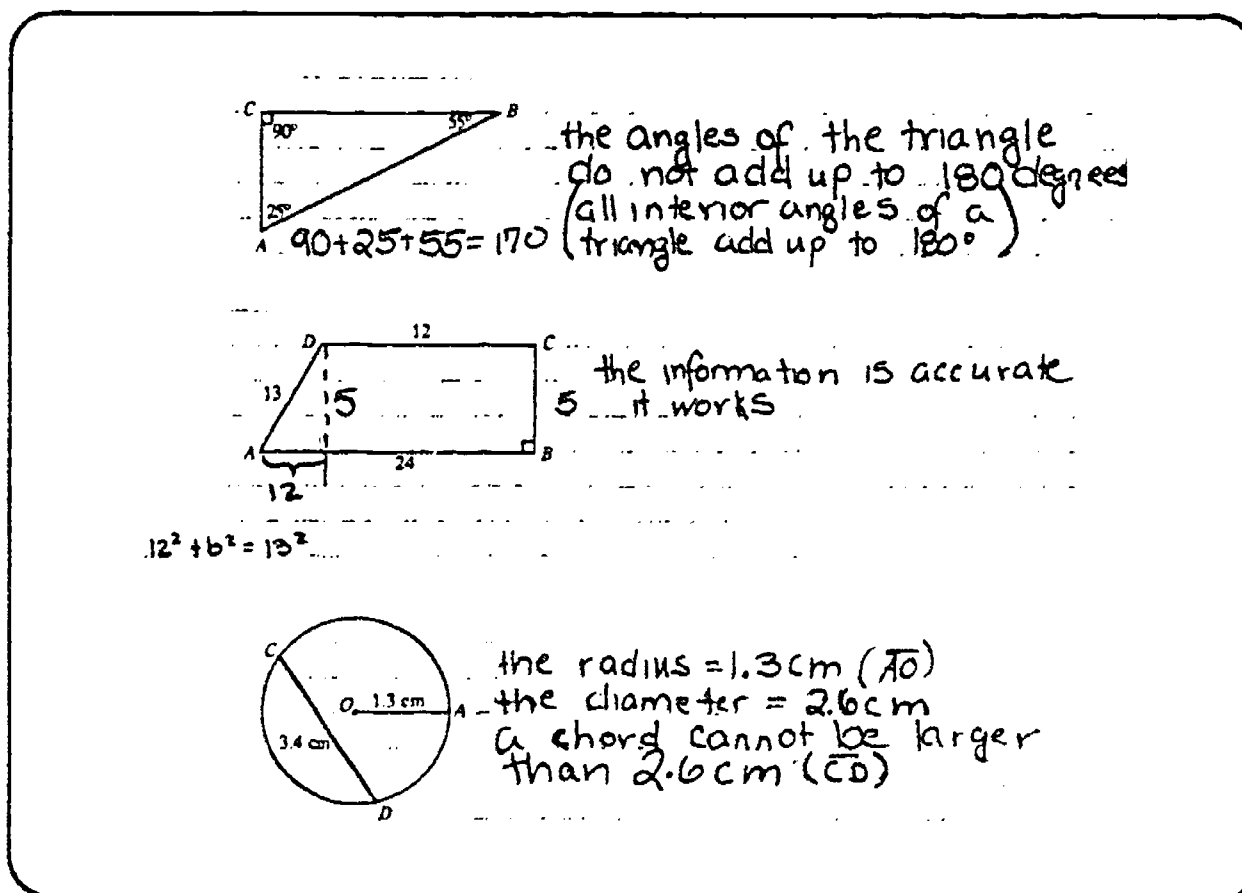 C
90°
55°
B
25°
A
90+25+55=170
the angles of the triangle
do not add up to 180 degrees
(all interior angles of a
triangle add up to 180°)
D
12
C
13
5
5
A
24
B
12
the information is accurate
it works
12² + b² = 13²
C
O
1.3 cm
A
3.4 cm
D
the radius = 1.3cm (A̅O̅)
the diameter = 2.6cm
a chord cannot be larger
than 2.6cm (C̅D̅)